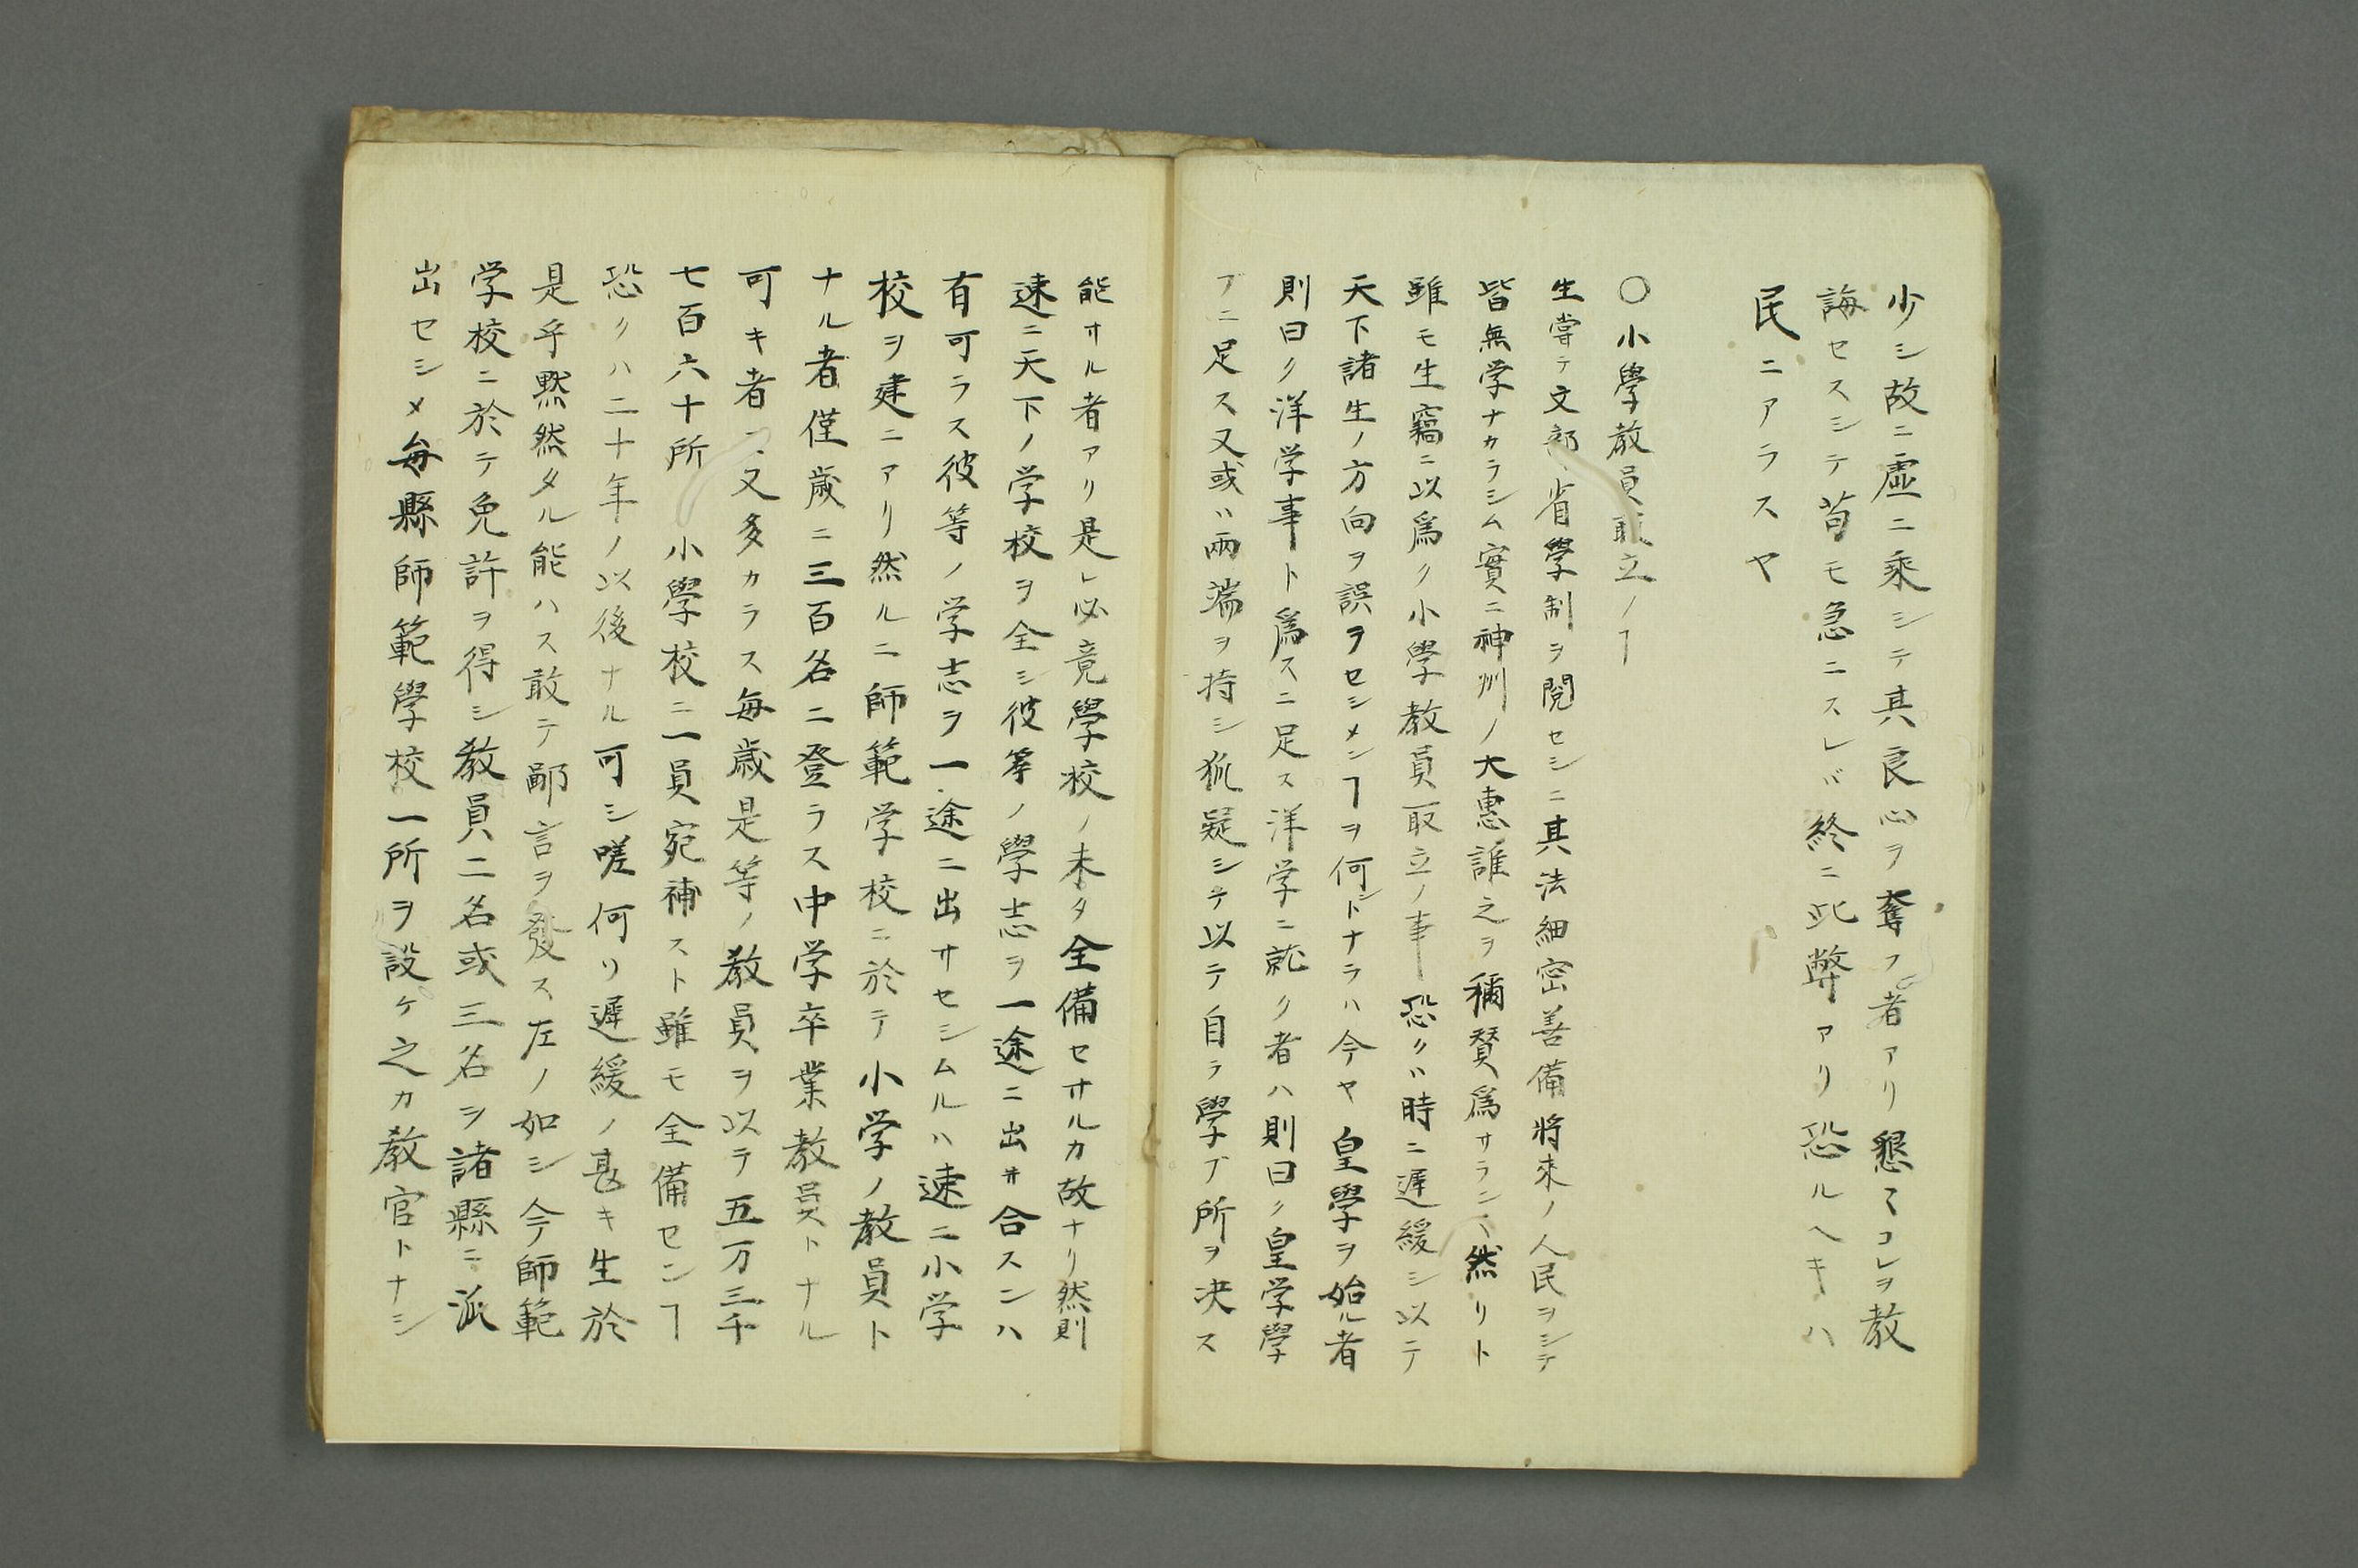 少シ故ニ虚ニ乘シテ其良心ヲ奪フ者アリ懇〻コレヲ教
誨セスシテ苟モ急ニスレバ終ニ此弊アリ恐ルヘキハ
民ニアラスヤ
〇小學教員取立ノヿ
生嘗テ文部省學制ヲ閲セシニ其法細密善備將來ノ人民ヲシテ
皆無学ナカラシム實ニ神州ノ大惠誰之ヲ稱賛為サランヤ然リト
雖モ生竊ニ以爲ク小學教員取立ノ事恐クハ時ニ遲緩シ以テ
天下諸生ノ方向ヲ誤ヲセシメンヿヲ何ントナラハ今ヤ皇學ヲ始ル者
則曰ク洋学事ト爲スニ足ス洋学ニ就ク者ハ則曰ク皇学學
フニ足ス又或ハ兩端ヲ持シ狐疑シテ以テ自ラ學フ所ヲ决ス
能サル者アリ是レ必竟學校ノ未タ全備セサルカ故ナリ然則
速ニ天下ノ学校ヲ全シ彼等ノ學志ヲ一途ニ出サ合スンハ
有可ラス彼等ノ学志ヲ一途ニ出サセシムルハ速ニ小学
校ヲ建ニアリ然ルニ師範学校ニ於テ小学ノ教員ト
ナル者僅歳ニ三百名ニ登ラス中学卒業教員トナル
可キ者又多カラス毎歳是等ノ教員ヲ以テ五万三千
七百六十所小學校ニ一員宛補スト雖モ全備センヿ
恐クハ二十年ノ以後ナル可シ嗟何リ遲緩ノ甚キ生於
是乎黙然タル能ハス敢テ鄙言ヲ發ス左ノ如シ今師範
学校ニ於テ免許ヲ得シ教員二名或三名ヲ諸縣ニ派
出セシメ毎縣師範學校一所ヲ設ケ之カ教官トナシ